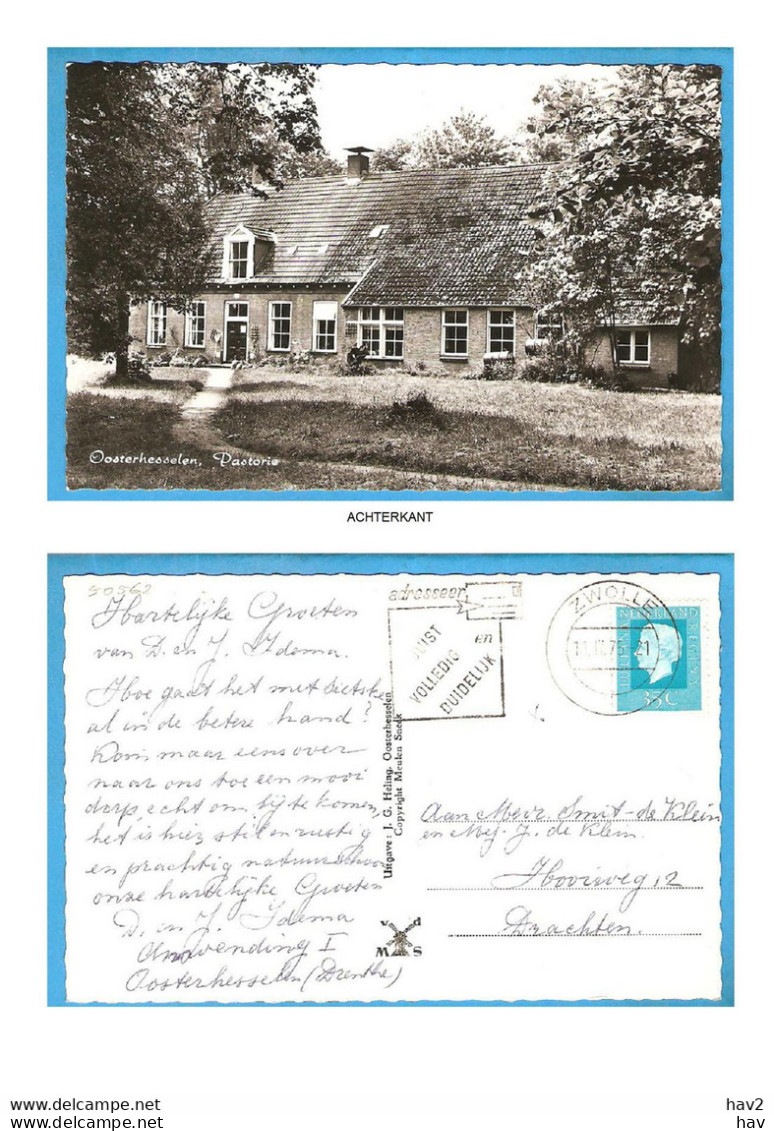 Oosterhesselen, Pastorie
ACHTERKANT
50562
Hartelijke Groeten
van D. en J. Idema.
Hoe gaat het met Sietske
al in de betere hand?
Kom maar eens over
naar ons toe een mooi
dorp, echt om bij te komen,
het is hier stil en rustig
en prachtig natuurschoon
onze hartelijke Groeten
D. en J. Idema
Aanwending I
Oosterhesselen (Drenthe)
Uitgave: J. G. Heling, Oosterhesselen
Copyright Meulen Sneek
v d
M S
adresseer
JUIST
VOLLEDIG
en
DUIDELIJK
ZWOLLE
75 21
NEDERLAND
35c
Aan Mevr. Smit-de Klein
en Mej. J. de Klein.
Drachten.
hav2
hav